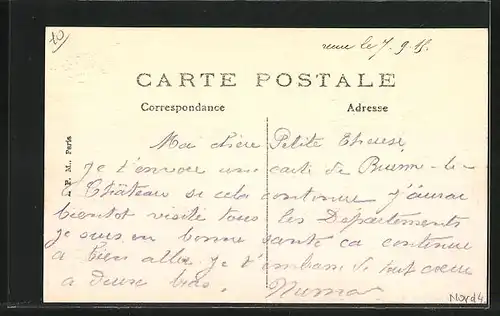 10
le 7.9.15.
CARTE POSTALE
Correspondance Adresse
P. M., Paris
Ma chère Petite Therese
Je t'envoie une carte de Brienne-le-
Château si cela continue j'aurai
bientot visité tous les Départements
je suis en bonne santé ca continue
a bien aller je t'embrasse de tout coeur
a deux bras. Numa
Nord 4.